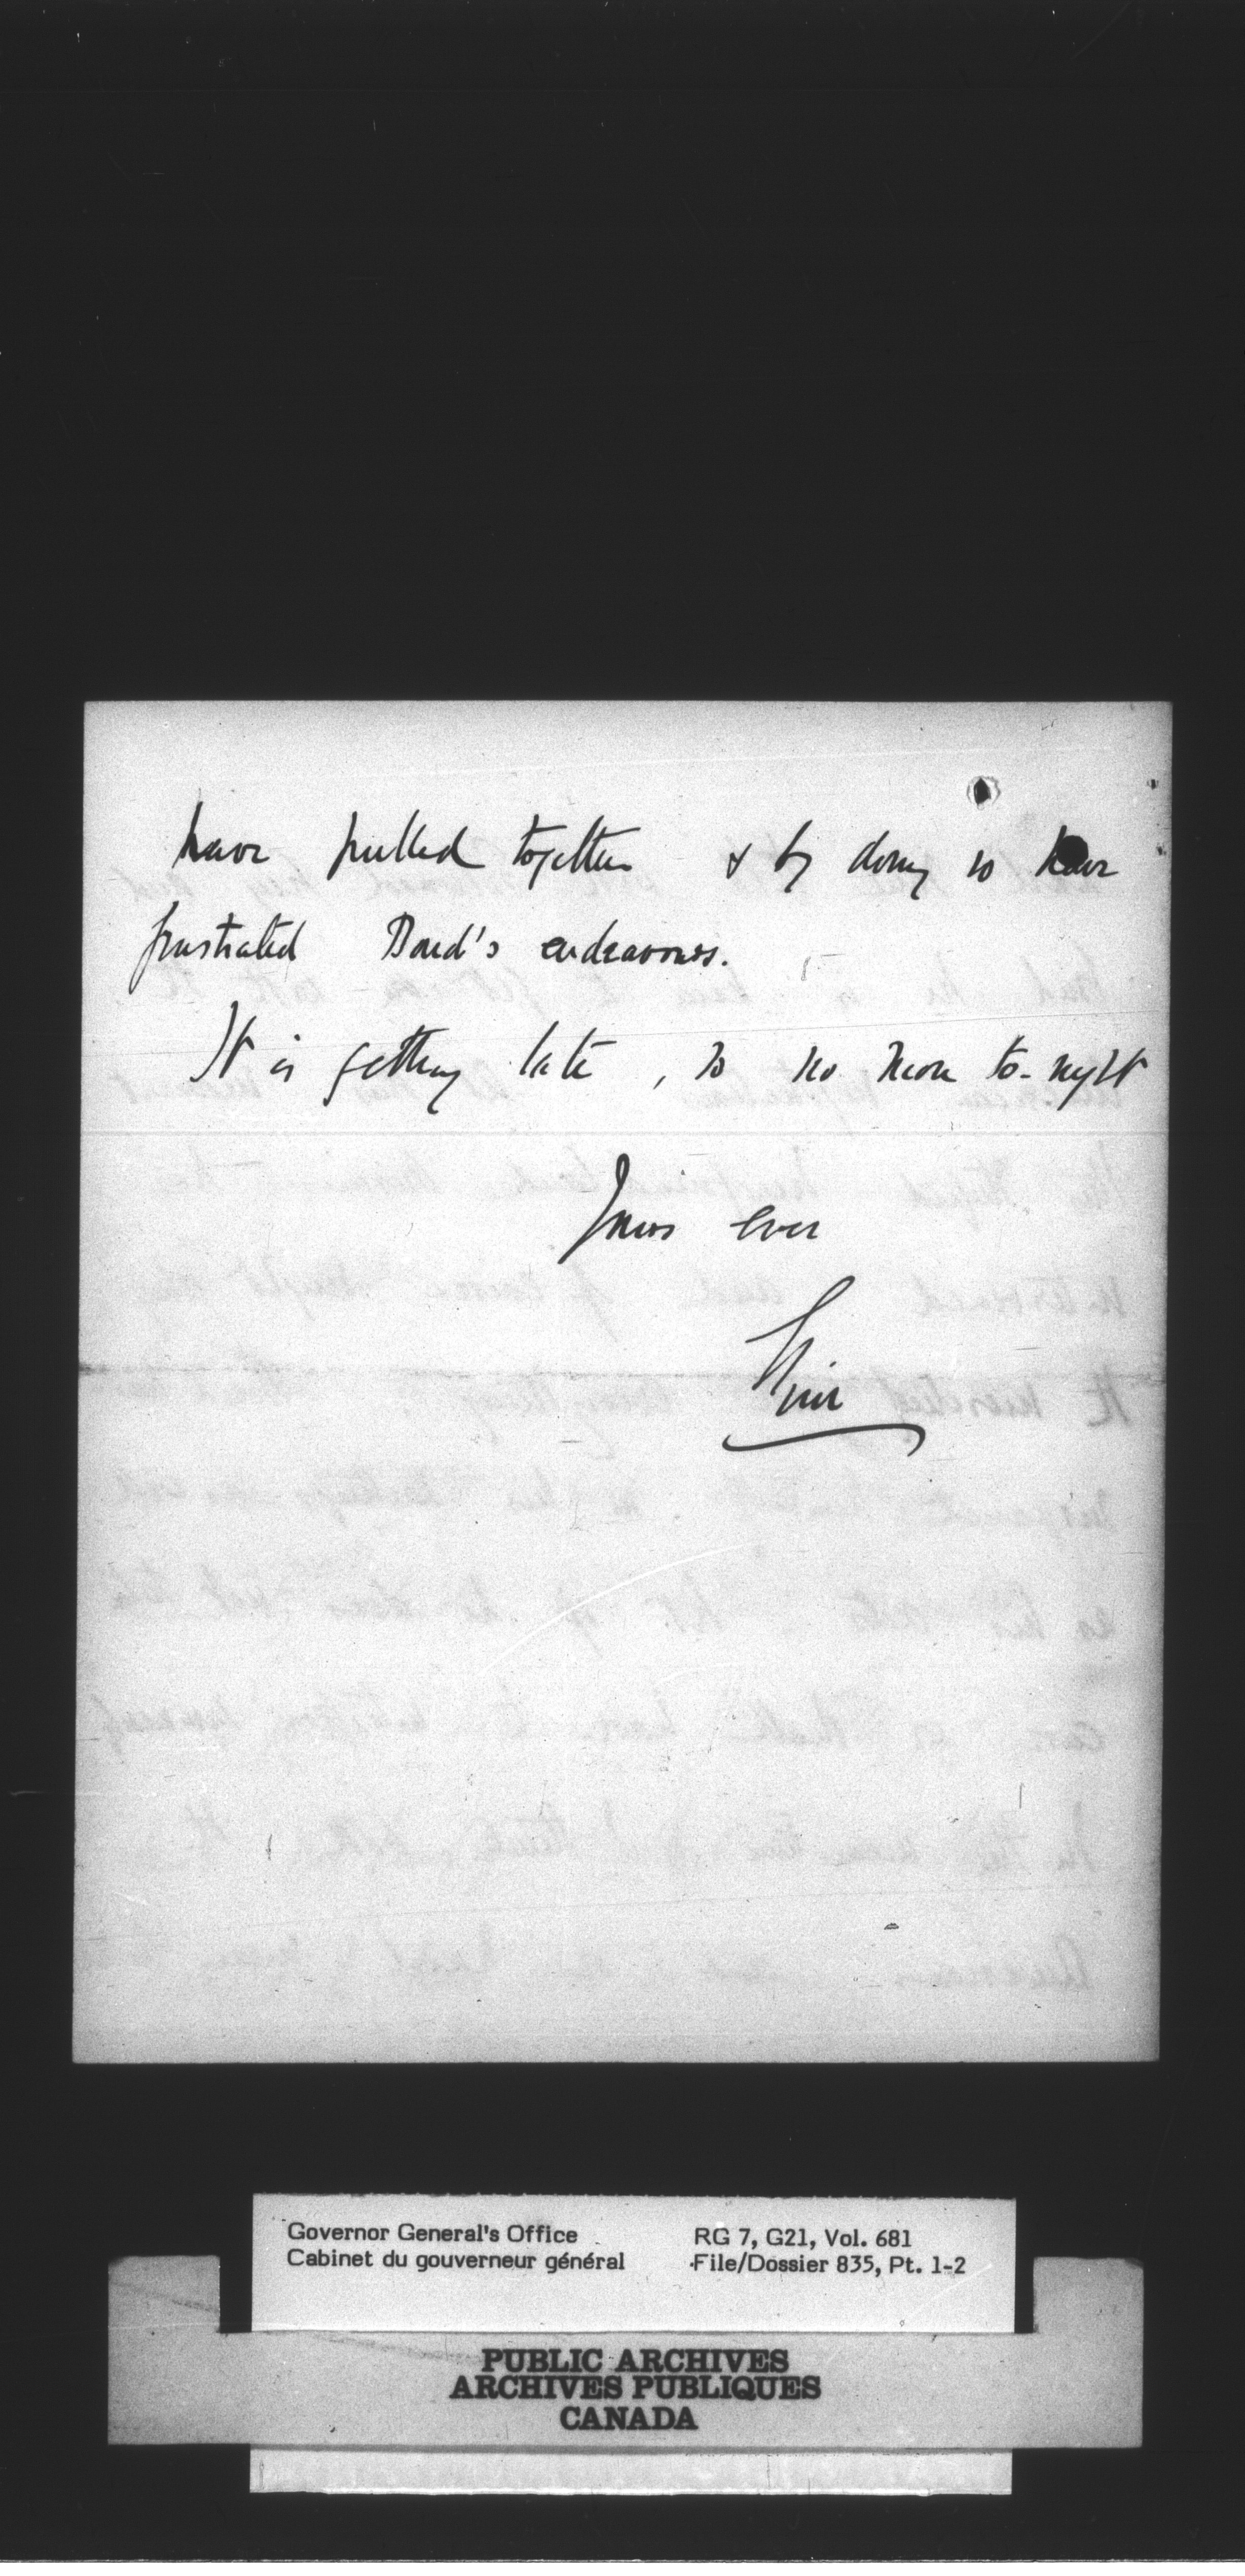 have pulled together & by doing so have
frustrated Bond's endeavours.
It is getting late, so no more to-night
Yours ever
Governor General's Office
Cabinet du gouverneur général
RG 7, G21, Vol. 681
File/Dossier 835, Pt. 1-2
PUBLIC ARCHIVES
ARCHIVES PUBLIQUES
CANADA